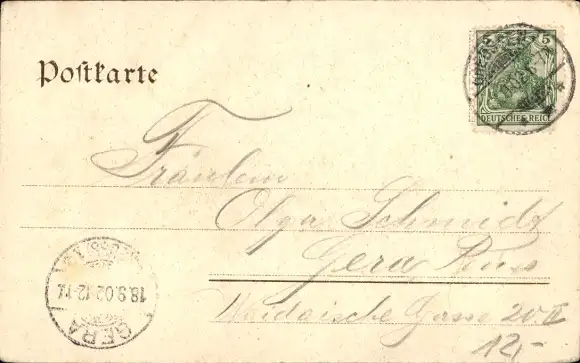 Postkarte
5 5
DEUTSCHES REICH
Fräulein
Olga Schmidt
Gera
Gasse 20 II
12,-
18.9.02.12-1
GERA